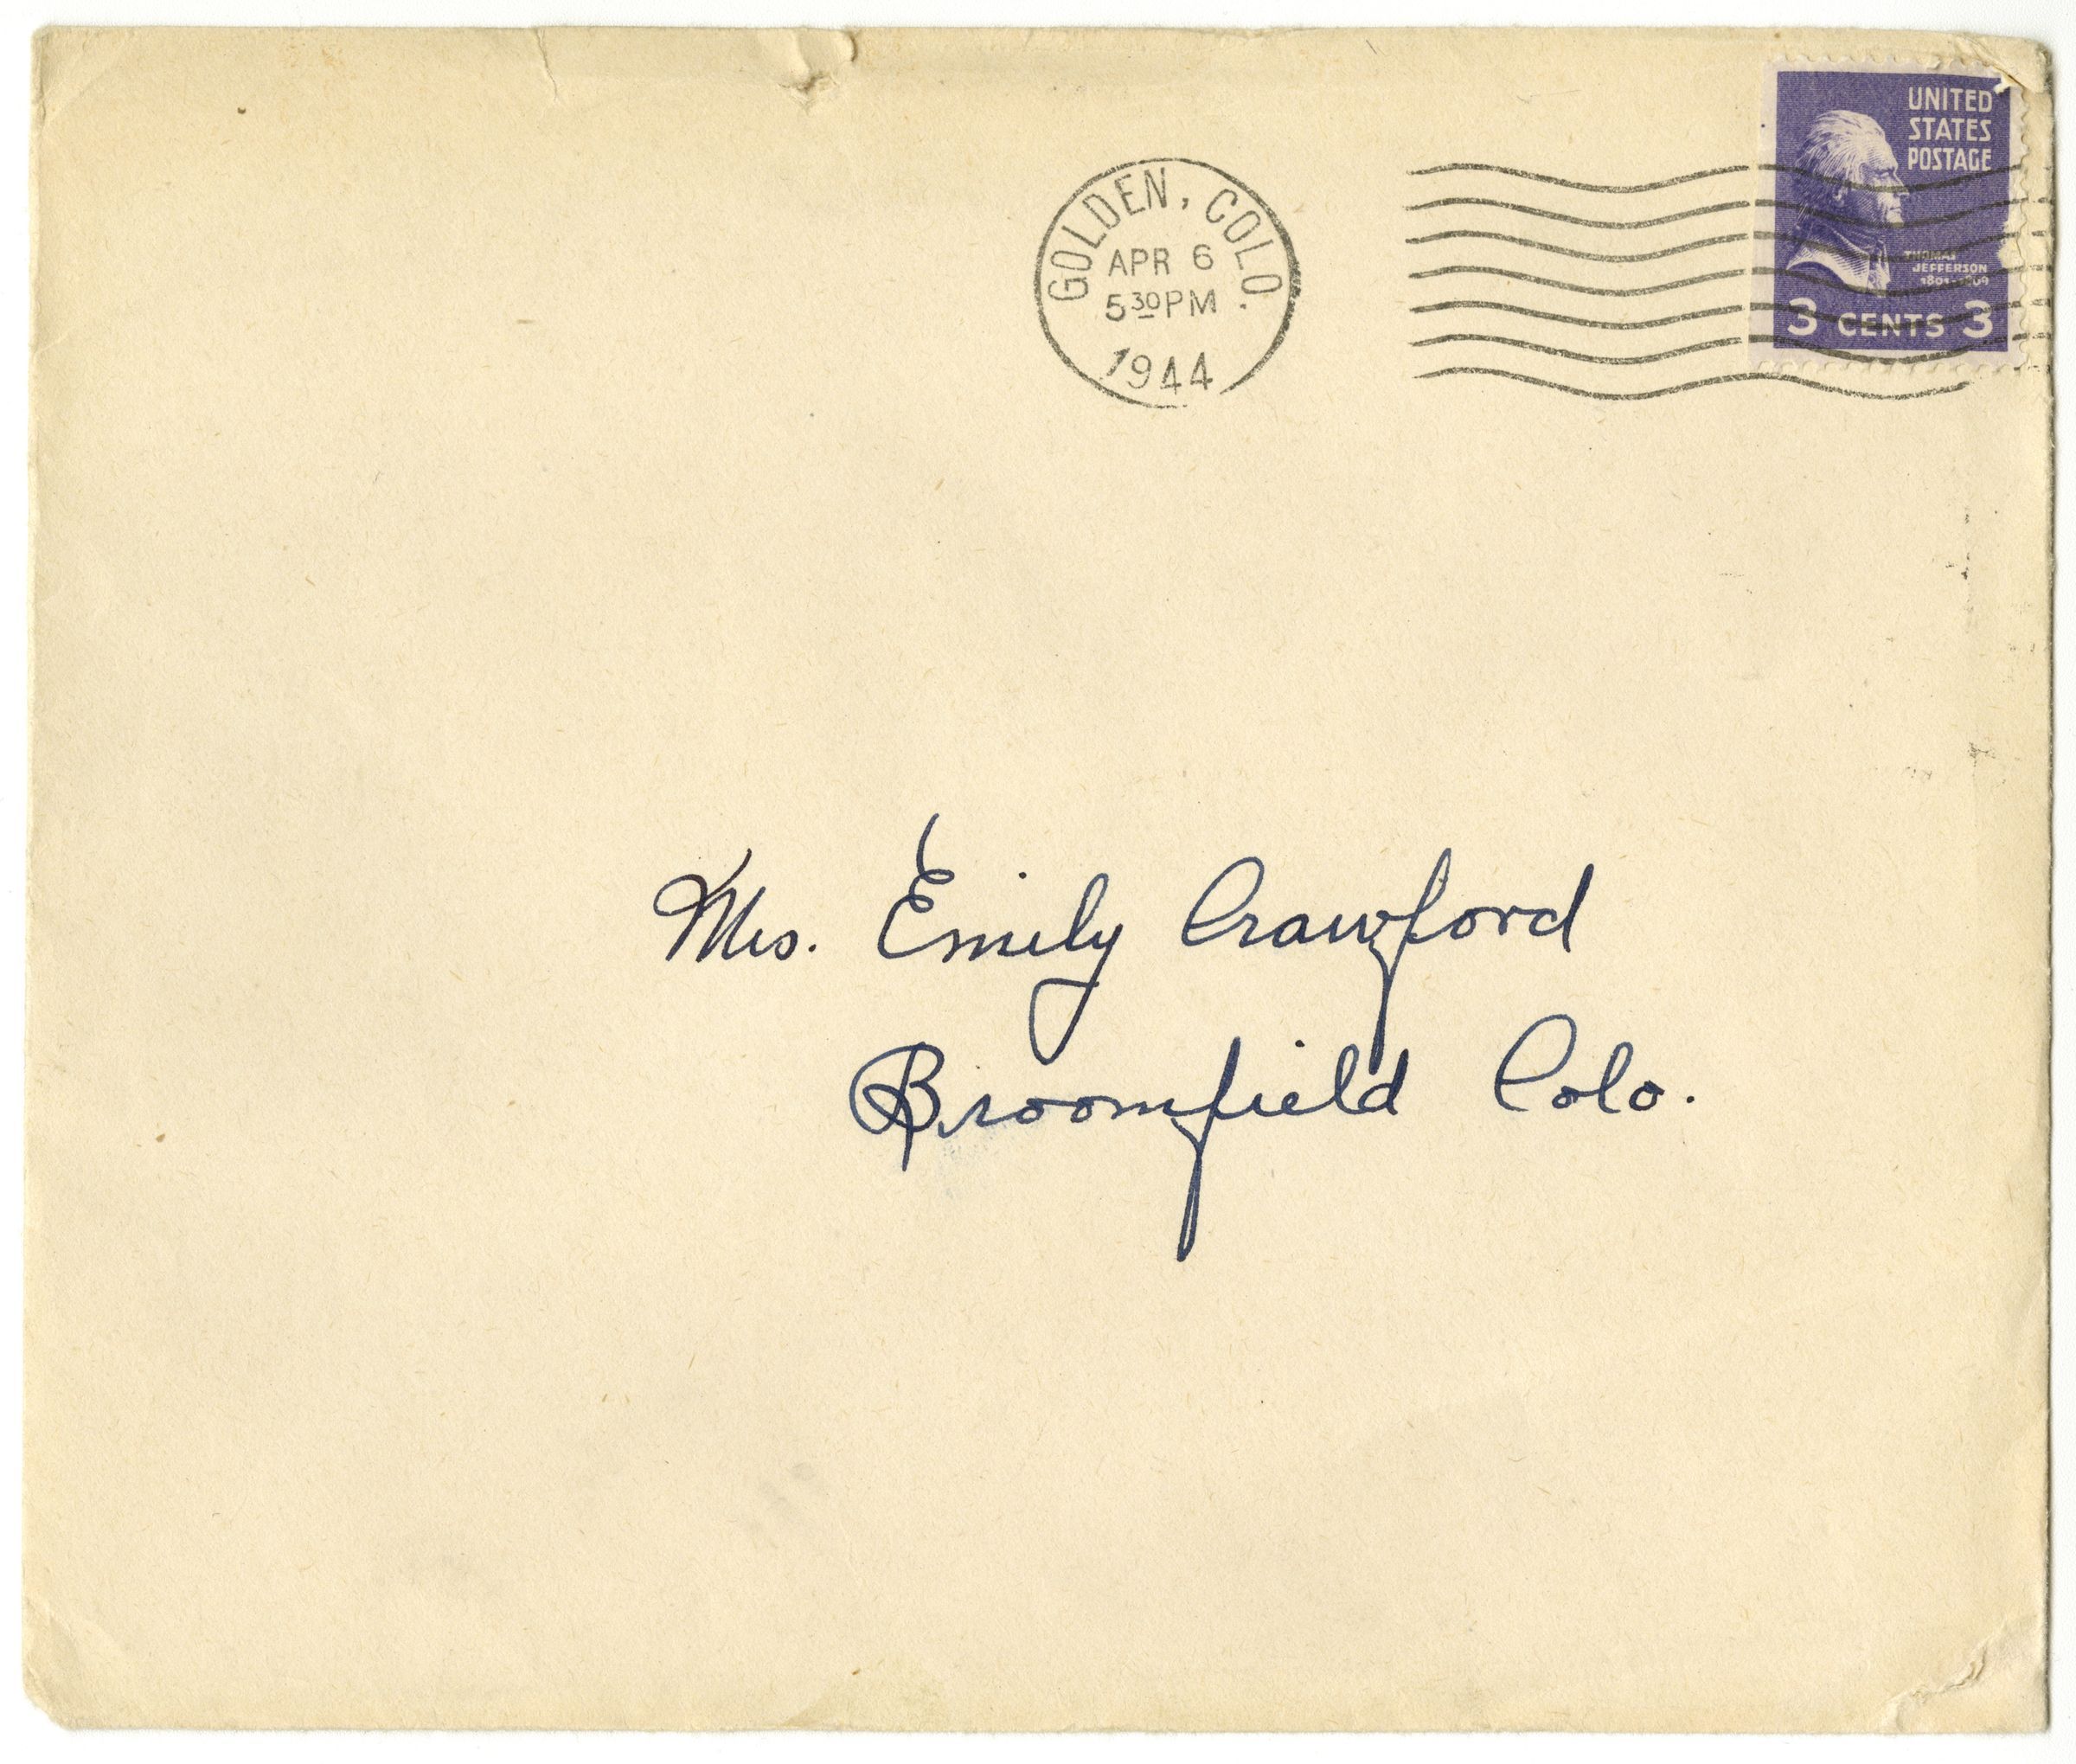 UNITED
STATES
POSTAGE
THOMAS
JEFFERSON
1801-1809
3 CENTS 3
GOLDEN, COLO.
APR 6
5 30 PM
1944
Mrs. Emily Crawford
Broomfield Colo.